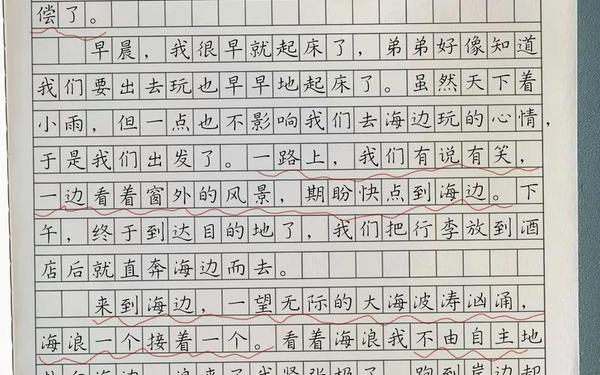 偿了。
早晨，我很早就起床了，弟弟好像知道
我们要出去玩也早早地起床了。虽然天下着
小雨，但一点也不影响我们去海边玩的心情，
于是我们出发了。一路上，我们有说有笑，
一边看着窗外的风景，期盼快点到海边。下
午，终于到达目的地了，我们把行李放到酒
店后就直奔海边而去。
来到海边，一望无际的大海波涛汹涌，
海浪一个接着一个。看着海浪我不由自主地
海边，浪来了我紧张极了，跑到岸边却